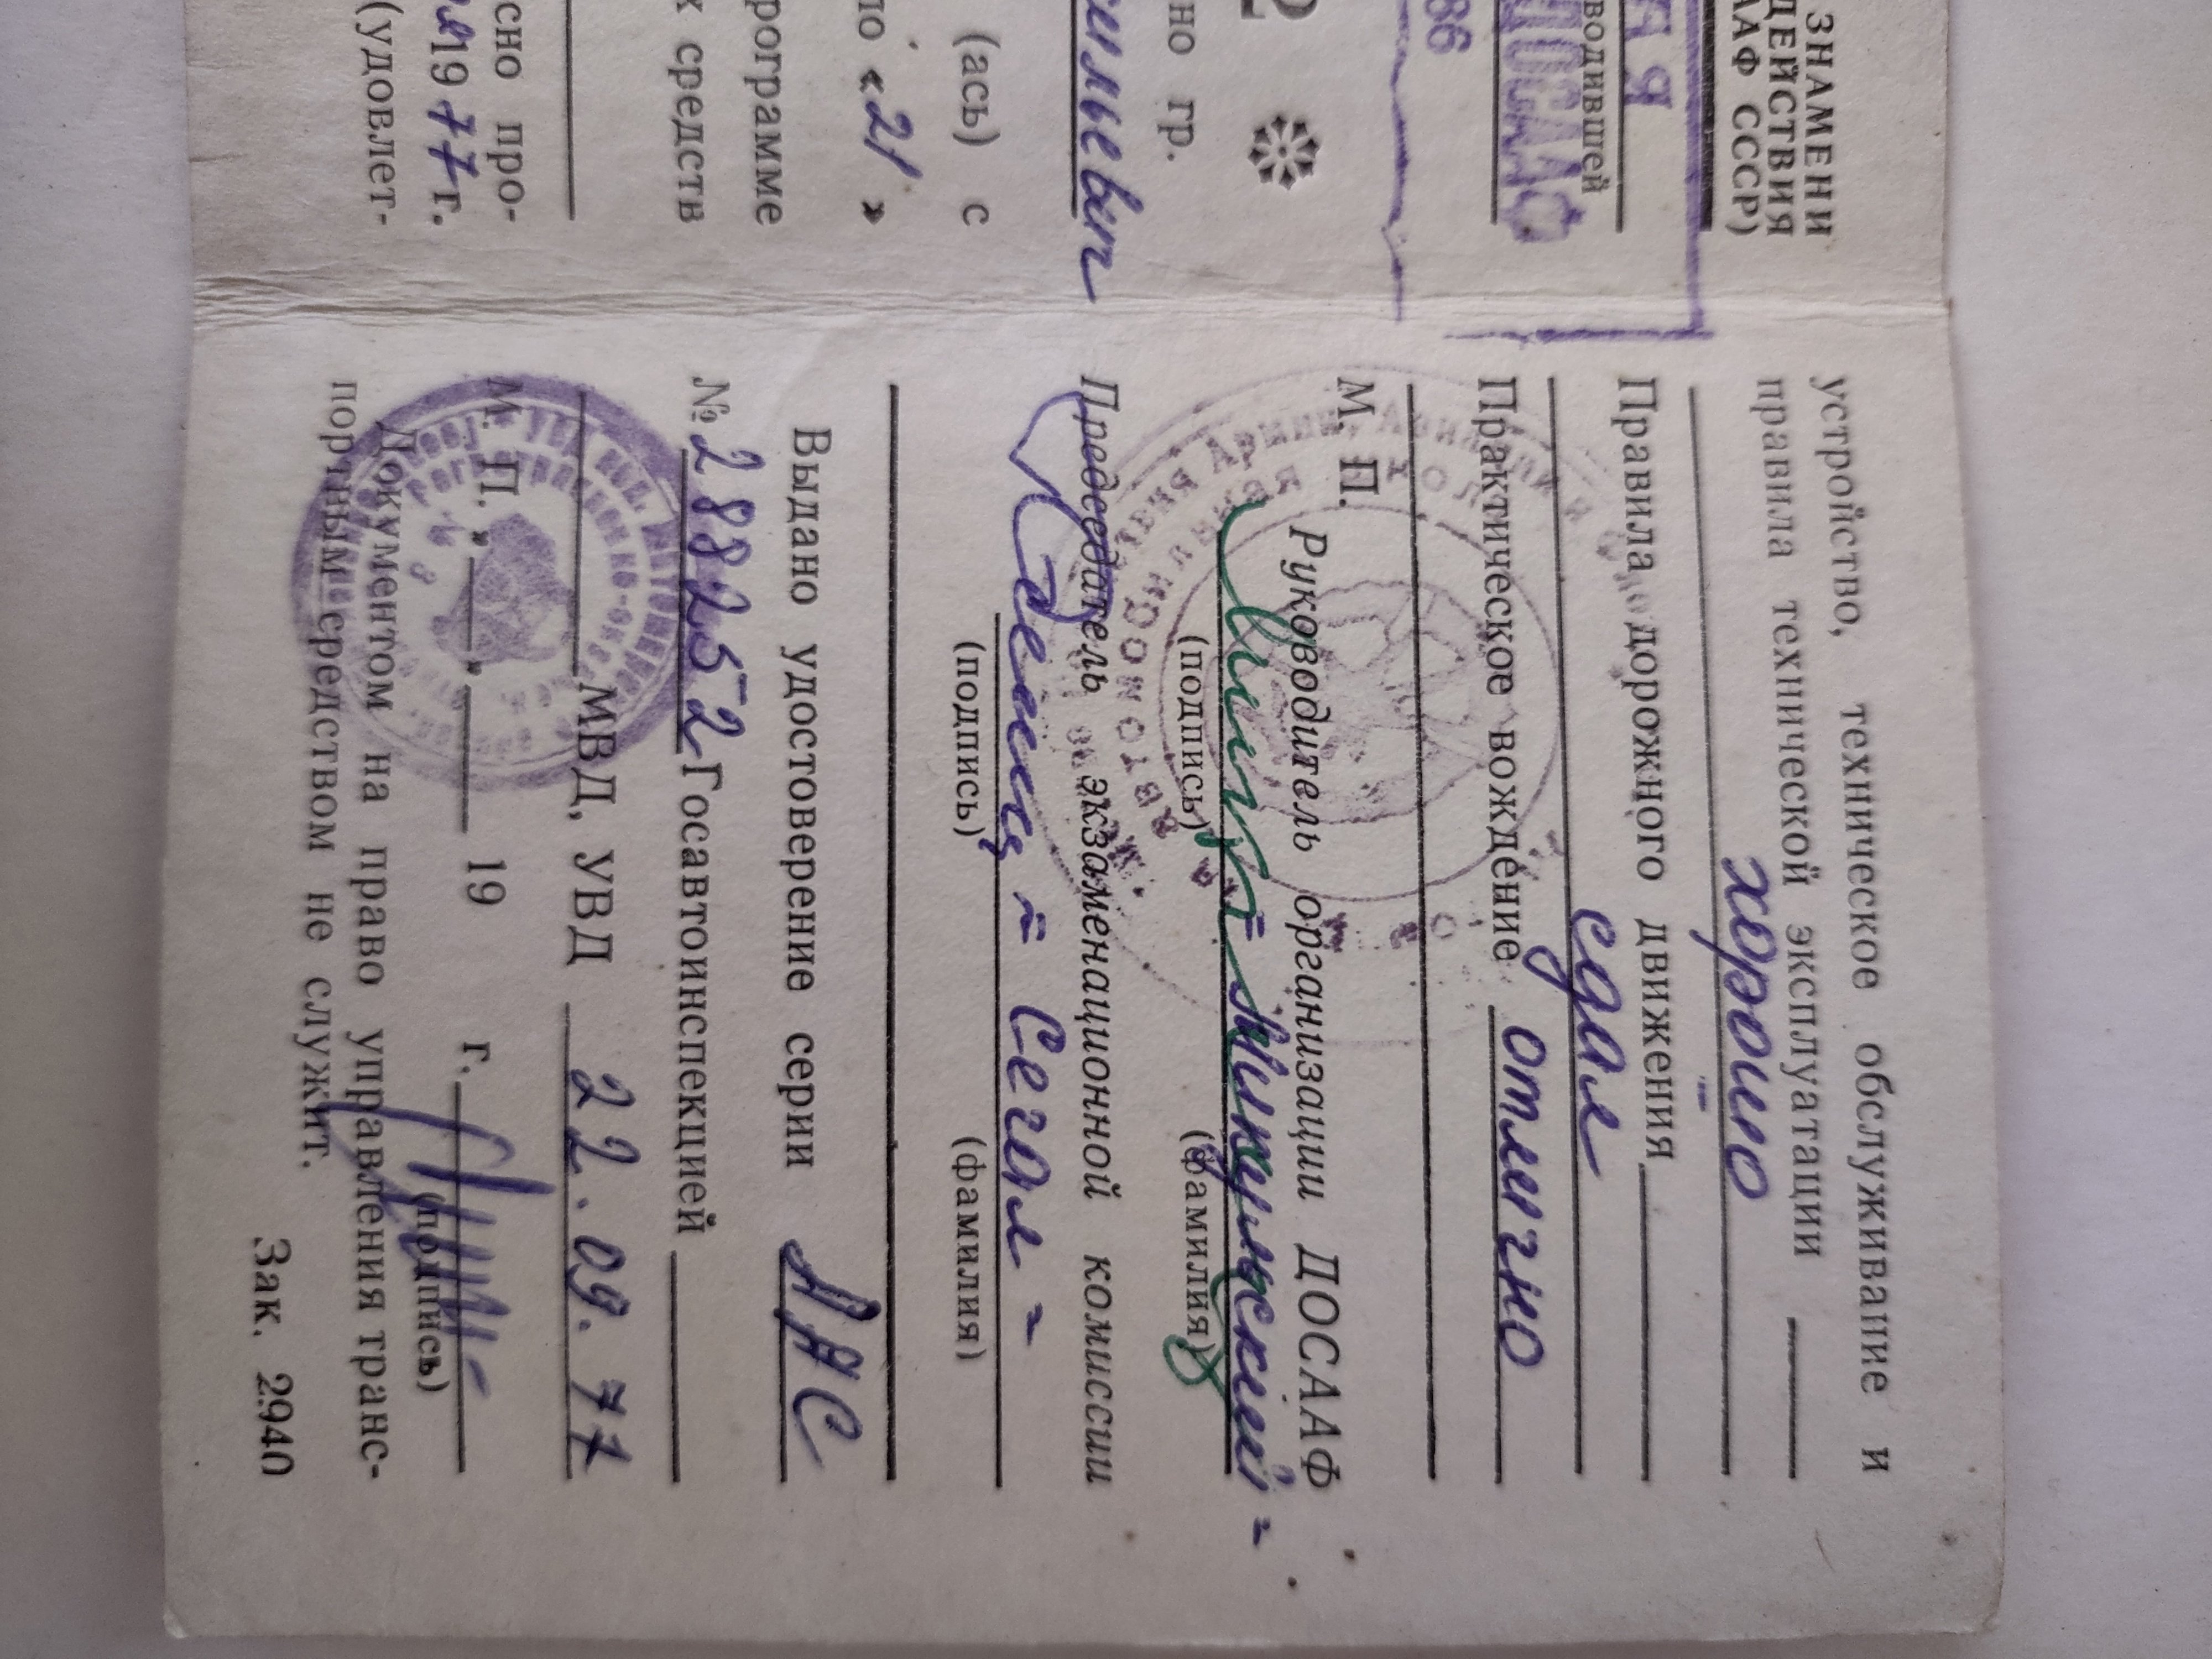 ЗНАМЕНИ
ДЕЙСТВИЯ
ААФ СССР)
АЯ
водившей
ДОСААФ
86
2
но гр.
сильевич
(ась) с
по «21»
рограмме
х средств
сно про-
1977 г.
(удовлет-
устройство, техническое обслуживание и
правила технической эксплуатации
хорошо
Правила дорожного движения
сдал
Практическое вождение отлично
М. П.
Руководитель организации ДОСААФ
Микульский =
(подпись) (фамилия)
Председатель экзаменационной комиссии
Сегал =
(подпись) (фамилия)
Выдано удостоверение серии ААС
№ 288252 Госавтоинспекцией
МВД, УВД 22.09.77
М. П. " " 19 г.
(подпись)
Документом на право управления транс-
портным средством не служит.
Зак. 2940